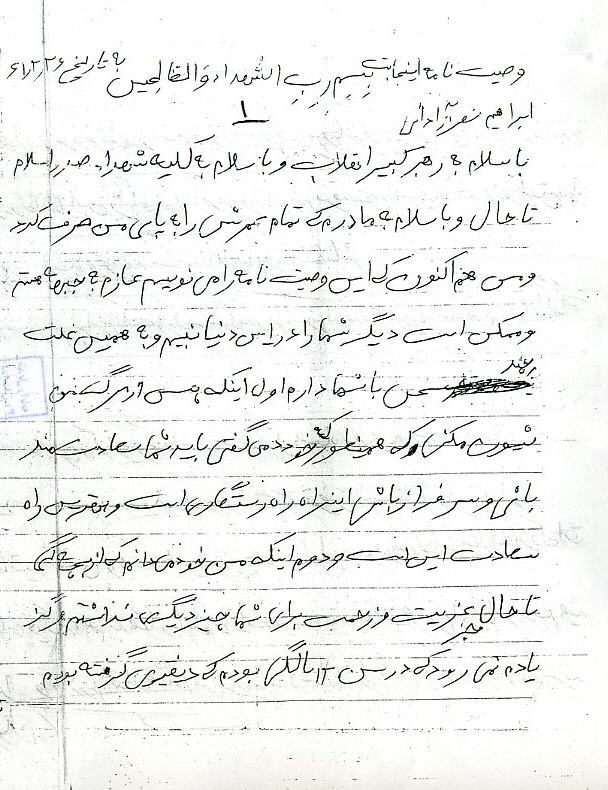 وصیت نامه اینجانب بسم رب الشهداء والصالحین به تاریخ ۶۱/۲/۲۶
ابراهیم
۱
با سلام به رهبر کبیر انقلاب و با سلام به کلیه شهداء صدر اسلام
تا حال و با سلام به مادرم که تمام عمرش را به پای من صرف کرد
و من هم اکنون که این وصیت نامه را می نویسم عازم به جبهه هستم
و ممکن است دیگر شما را در این دنیا نبینم و به همین علت
چند سخن با شما دارم اول اینکه پس از مرگ من
شیون مکن و که همینطور که خود می گفتی باید شما سعادت مند
باشی و سرفراز باش این راه راه رستگاری است و بهترین راه
سعادت این است و دوم اینکه من خود می دانم که از بچه گی
تا حال بجز اذیت و زحمت برای شما چیز دیگری نداشتم هرگز
یادم نمی رود که در سن ۱۲ سالگی بودم که دیفتری گرفته بودم